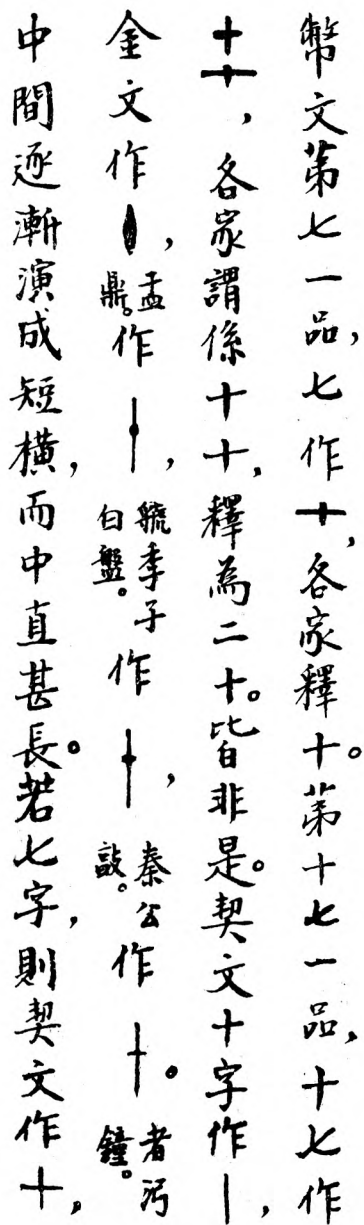 幣文第七一品，七作十，各家釋十。第十七一品，十七作
十十，各家謂係十十，釋為二十。皆非是。契文十字作丨，
金文作，盂鼎。作，虢季子白盤。作，秦公𣪘。作。者沪鐘。
中間逐漸演成短橫，而中直甚長。若七字，則契文作十。